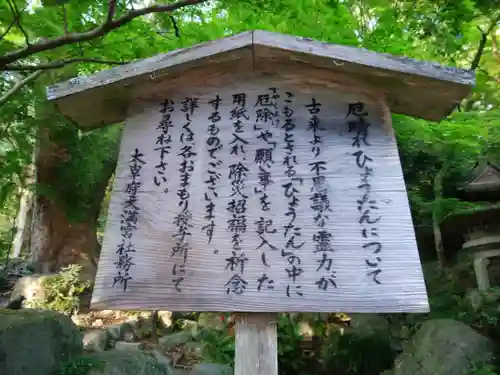 厄晴れひょうたんについて
古来より不思議な霊力が
こもるとされる「ひょうたん」の中に
「厄除」や「願い事」を記入した
やくよけ
用紙を入れ、除災招福を祈念
するものでございます。
詳しくは各おまもり授与所にて
お尋ね下さい。
太宰府天満宮社務所